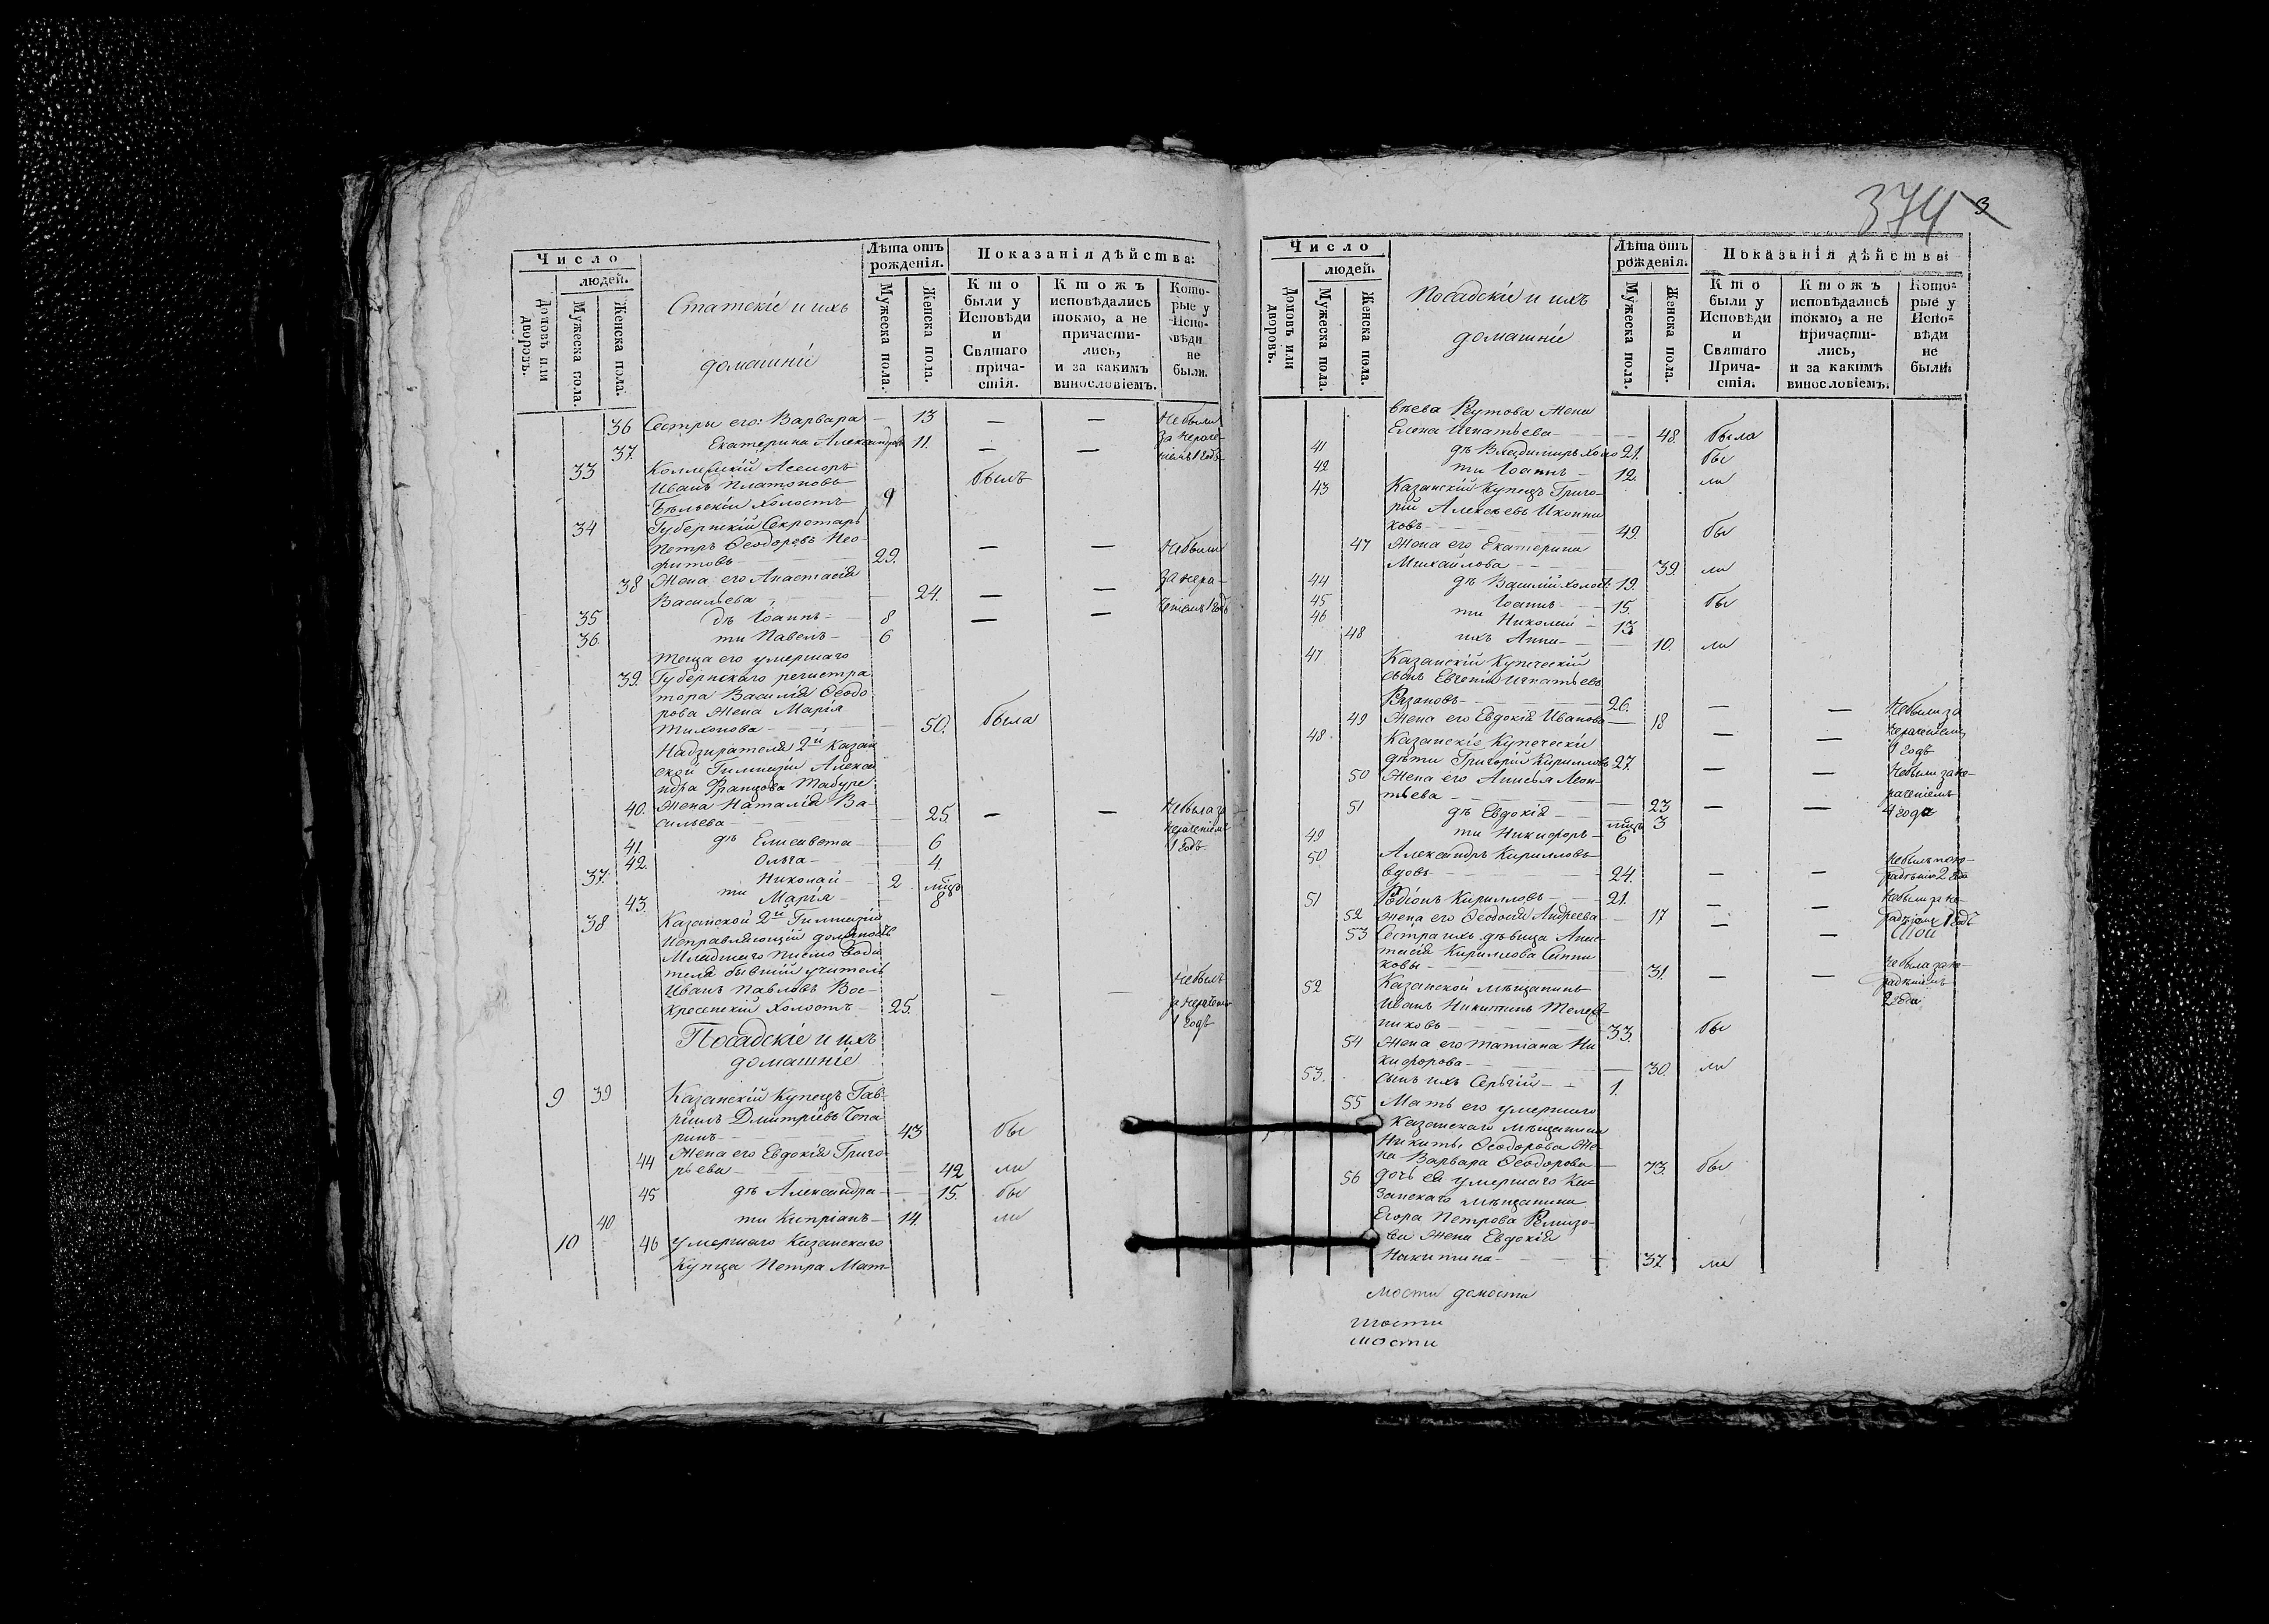 374 3
Число
людей.
Домовъ или дворовъ.
Мужеска пола.
Женска пола.
Статскіе и ихъ
домашніе
Лѣта отъ рожденія.
Мужеска пола.
Женска пола.
Показанія дѣйства:
Кто были у Исповѣди и Святаго прича-стія.
Ктожъ исповѣдались токмо, а не причасти-лись, и за какимъ винословіемъ.
Кото-рые у Испо-вѣди не были.
36 Сестры его: Варвара — 13 — — Небыли
37. Екатерина Александров 11 — — за нераче-
33 Коллежскій Асесоръ ніемъ 1 годъ
Иванъ Платоновъ былъ
Бѣльскій холостъ 9
34 Губернскій Секретарь
Петръ Ѳеодоровъ Нео-
фитовъ 29. — — Небыли
38 Жена его Анастасія за нера-
Васильева 24. — — ченіемъ 1 годъ
35 дѣ Іоаннъ 8 — —
36. ти Павелъ 6
Теща его умершаго
39. Губернскаго регистра
тора Василія Ѳеодо
рова жена Марія
Тихонова 50. была
Надзирателя 2й Казан
ской Гимназіи Алекса
ндра Францова Табуре
40. жена Наталія Ва-
сильева 25. — — Небыла за
41. дѣ Елисавета 6 нераченіемъ
42. Ольга 4 1 годъ.
37. Николай 2 мцъ
43. ти Марія 8
38 Казанской 2й Гимназіи
Исправляющій должность
Младшаго письмо води
теля бывшій учитель
Иванъ Павловъ Вос- Небылъ
кресенскій холостъ 25. — — за нераченіем
1 годъ
Посадскіе и ихъ
домашніе
9 39 Казанскій Купецъ Гав-
ріилъ Дмитріевъ Чепа
ринъ 43 бы
44 Жена его Евдокія Григо
рьева 42 ли
45 дѣ Александра 15. бы
40 ти Кипріанъ 14. ли
10 46 умершаго Казанскаго
Купца Петра Мат-
Число
людей.
Домовъ или дворовъ.
Мужеска пола.
Женска пола.
Посадскіе и ихъ
домашніе
Лѣта отъ рожденія.
Мужеска пола.
Женска пола.
Показанія дѣйства:
Кто были у Исповѣди и Святаго Прича-стія.
Ктожъ исповѣдались токмо, а не причасти-лись, и за какимъ винословіемъ.
Кото-рые у Испо-вѣди не были.
вѣева Рутова жена
Елена Игнатьева 48. была
41 дѣ Владимиръ холо 21. бы
42 ти Іоаннъ 12. ли
43 Казанскій Купецъ Григо-
рій Алексѣевъ Иконни
ковъ 49. бы
47 Жена его Екатерина
Михайлова 39. ли
44 дѣ Василій холост 19.
45 Іоаннъ 15. бы
46 ти Николай 13
48 ихъ Анна 10. ли
47 Казанскій Купеческій
сынъ Евгеній Игнатьевъ
Рязановъ 26. — — Небыли за
49 Жена его Евдокія Иванова 18 — — нераченіемъ
48. Казанскіе Купечески 1 годъ
дѣти Григорій Кирилловъ 27. — — Небыли за не-
50 Жена его Анисья Леон- раченіемъ
тьева 23 — — 4 года
51 дѣ Евдокія мцъ 3
49. ти Никифоръ 6
50 Александръ Кирилловъ
вдовъ 24. — — Небылъ по не-
радѣнію 2 года
51 Родіонъ Кирилловъ 21. — — Небыли за не-
52 Жена его Ѳеодосія Андреева 17 — — радѣніем 1 годъ
53 Сестра ихъ дѣвица Анас-
тасія Кириллова
ковы 31. — — Небыла за не-
радѣніемъ
2 года
52 Казанской мѣщанинъ
Иванъ Никитинъ
никовъ 33. бы
54 Жена его Татіана Ни
кифорова 30. ли
53. сынъ ихъ Сергій 1.
55 Мать его умершаго
Казанскаго мѣщанина
Никиты Ѳеодорова же-
на Варвара Ѳеодорова 73. бы
56 дочь ея умершаго Ка-
занскаго мѣщанина
Егора Петрова Ремизо-
ва жена Евдокія
Никитина 37 ли
мости домости
мости